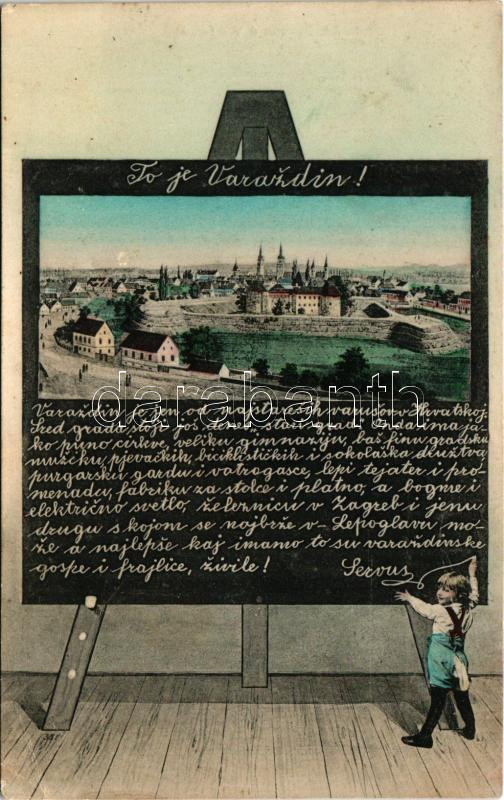 To je Varaždin!
darabanth
Varaždin je jen od najstarešh varušov v Hrvatskoj.
Sred grada stoji još stari grad
ko puno cirkve, veliku gimnaziju, baš finu gradsku
mužiku, pjevačkih, biciklističkih i sokolaška družtva,
purgarsku gardu i vatrogasce, lepi tejater i pro-
menadu, fabriku za stolce i platno, a bogme i
električno svetlo, železnicu v Zagreb i jenu
drugu s kojom se najbrže v Lepoglavu mo-
že a najlepše kaj imamo to su varaždinske
gospe i frajlice, živile! Servus